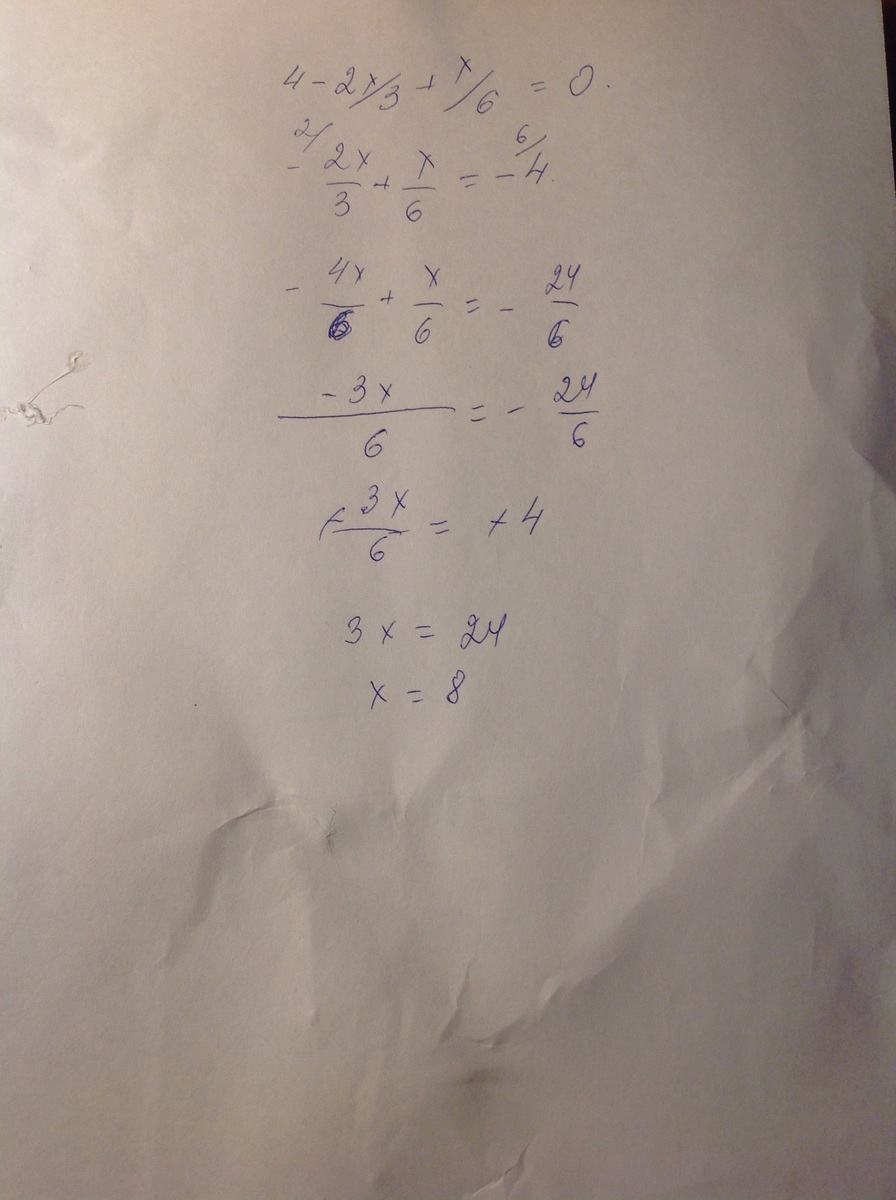 4 - 2x/3 + x/6 = 0.
- 2/ 2x/3 + x/6 = - 6/ 4.
- 4x/6 + x/6 = - 24/6
- 3x/6 = - 24/6
+ 3x/6 = + 4
3x = 24
x = 8